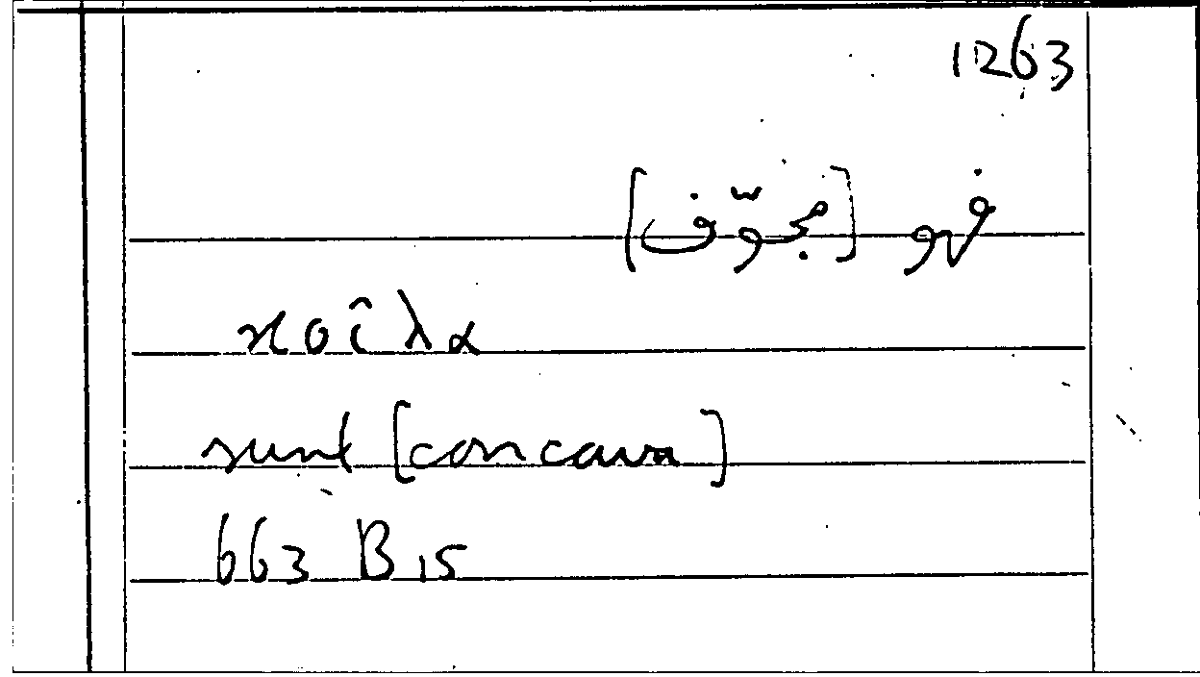 1263
فهو [مجوّف]
κοῖλα
sunt [concava]
663 B 15